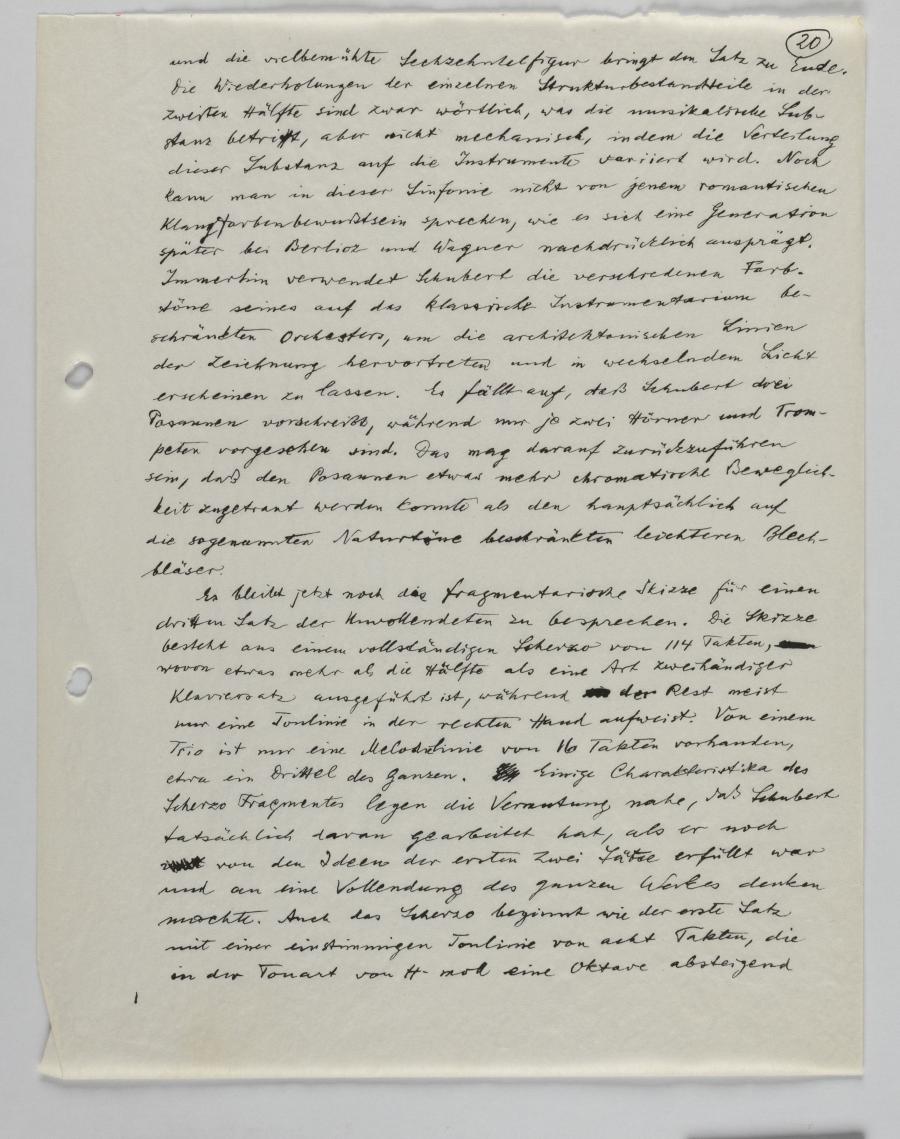 20
und die vielbemühte Sechzehntelfigur bringt den Satz zu Ende.
Die Wiederholungen der einzelnen Strukturbestandteile in der
zweiten Hälfte sind zwar wörtlich, was die musikalische Sub-
stanz betrifft, aber nicht mechanisch, indem die Verteilung
dieser Substanz auf die Instrumente variiert wird. Noch
kann man in dieser Sinfonie nicht von jenem romantischen
Klangfarbenbewußtsein sprechen, wie es sich eine Generation
später bei Berlioz und Wagner nachdrücklich ausprägt.
Immerhin verwendet Schubert die verschiedenen Farb-
töne seines auf das klassische Instrumentarium be-
schränkten Orchesters, um die architektonischen Linien
der Zeichnung hervortreten und in wechselndem Licht
erscheinen zu lassen. Es fällt auf, daß Schubert drei
Posaunen vorschreibt, während nur je zwei Hörner und Trom-
peten vorgesehen sind. Das mag darauf zurückzuführen
sein, daß den Posaunen etwas mehr chromatische Beweglich-
keit zugetraut werden konnte als den hauptsächlich auf
die sogenannten Naturtöne beschränkten leichteren Blech-
bläser.
Es bleibt jetzt noch die fragmentarische Skizze für einen
dritten Satz der Unvollendeten zu besprechen. Die Skizze
besteht aus einem vollständigen Scherzo von 114 Takten,
wovon etwas mehr als die Hälfte als eine Art zweihändiger
Klaviersatz ausgeführt ist, während der Rest meist
nur eine Tonlinie in der rechten Hand aufweist. Von einem
Trio ist nur eine Melodielinie von 16 Takten vorhanden,
etwa ein Drittel des Ganzen. Einige Charakteristika des
Scherzo Fragmentes legen die Vermutung nahe, daß Schubert
tatsächlich daran gearbeitet hat, als er noch
von den Ideen der ersten zwei Sätze erfüllt war
und an eine Vollendung des ganzen Werkes denken
mochte. Auch das Scherzo beginnt wie der erste Satz
mit einer einstimmigen Tonlinie von acht Takten, die
in der Tonart von H-moll eine Oktave absteigend